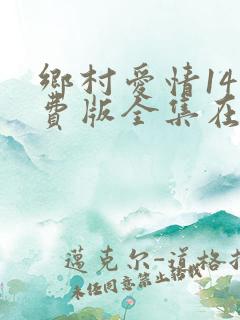 鄉村愛情14
費版全集在
邁克尔-道格拉
未经同意禁止转载